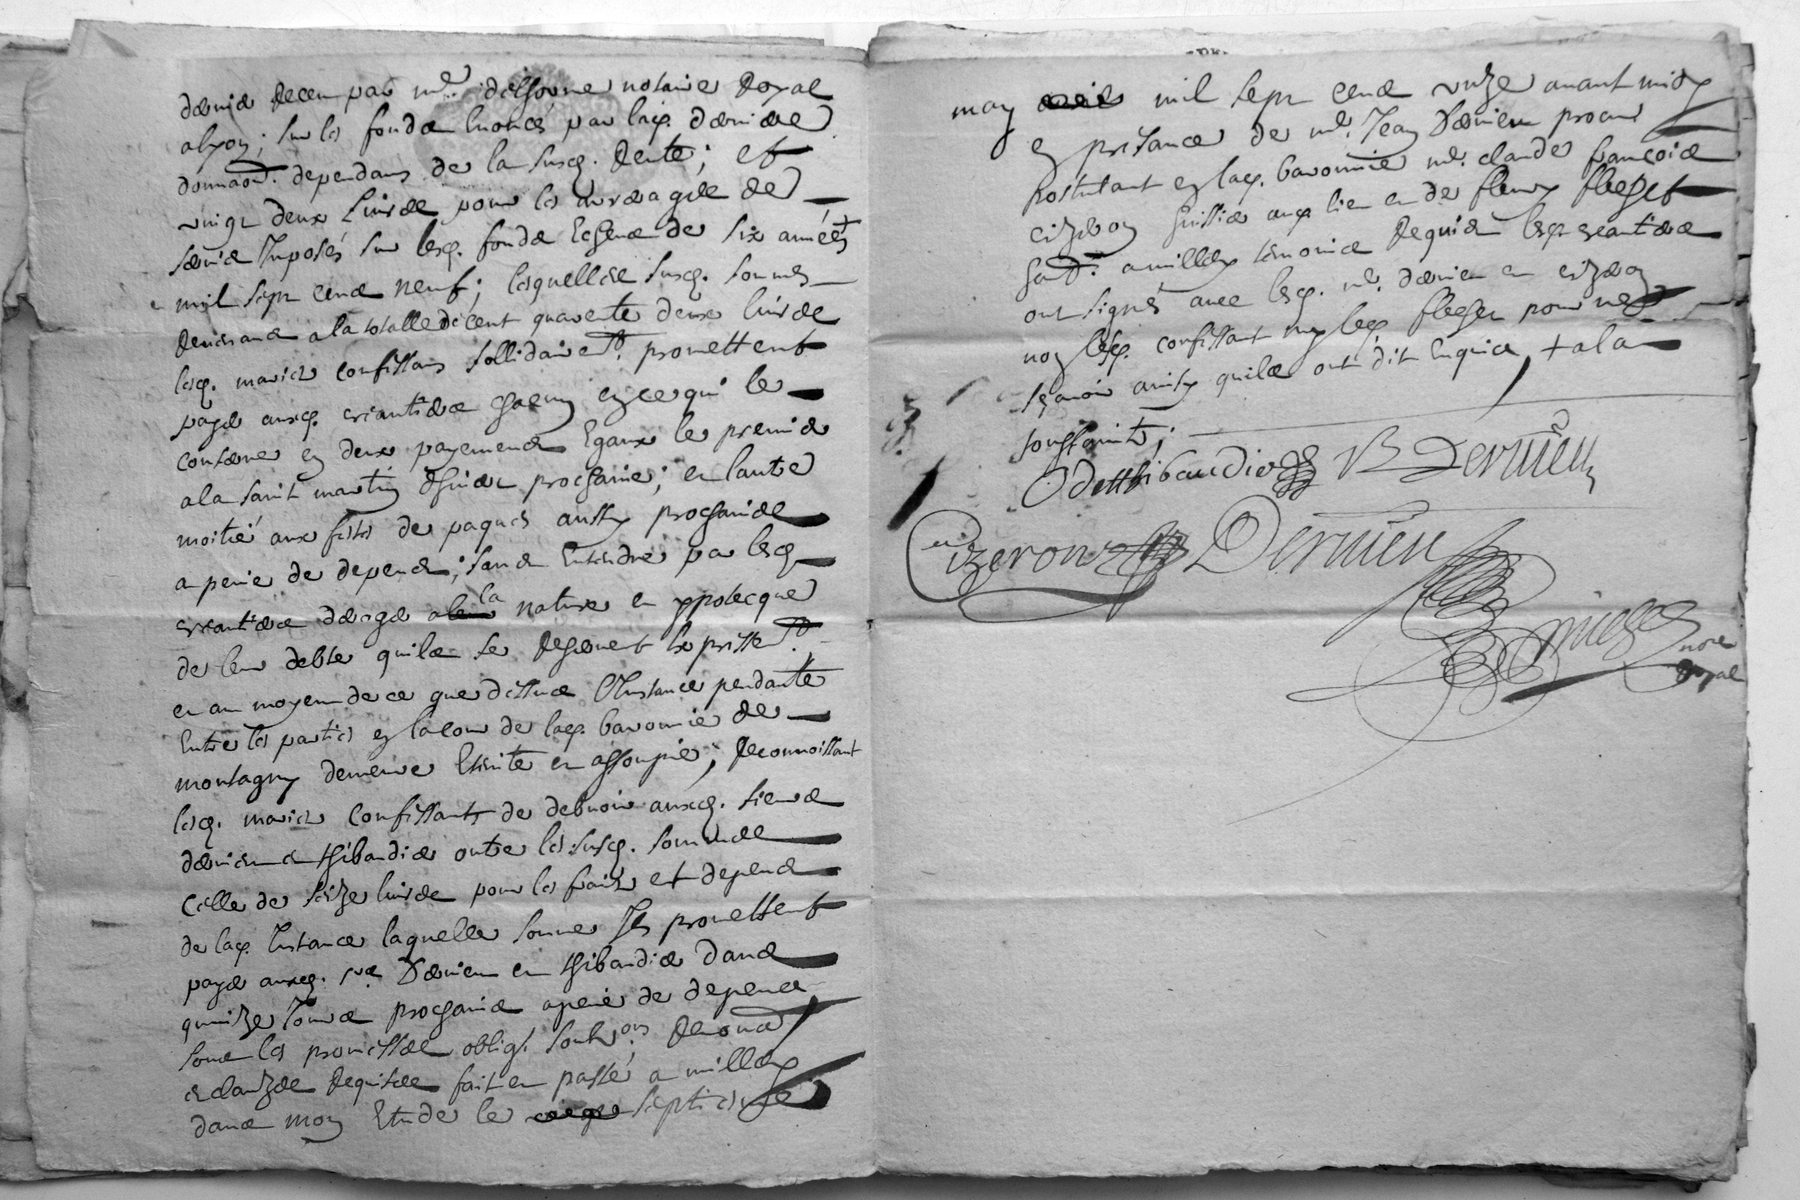 dernier receu par me. delhorme notaire Royal
alyon; sur les fonds enoncés par lad. derniere
donnaon. dependans de la susd. Rente; et
vingt deux livres pour les arrerages de
servis Imposés sur lesd. fonds Echeus de six années
mil sept cens neuf; lesquelles susd. sommes
revenans a la totalle de cent quarente deux livres
lesd. mariés confessans sollidairemt. promettent
payer auxd. creantiers chacun en ce qui le
conserne en deux payemens Egaux le premier
a la saint martin d'hiver prochaine; et lautre
moitié aux festes de paques aussy prochaines
a peine de depens; sans Entendre par lesd.
creantiers deroger a la nature et ypotecque
de leur debte quils se reservent Expressemt.
et au moyenn de ce que dessus l'Instance pendante
Entre les parties en la cour de lad. baronnie de
montagny demeure Eteinte et assoupie; Reconnoissant
lesd. mariés confessants de debvoir auxd. sieurs
dervieu et thibaudier outre les susd. sommes
celle de seize livres pour les fraix et depens
de lad. Instance laquelle somme Ils promettent
payer auxd. srs. Dervieu et thibaudier dans
quinze jours prochains a peine de depens
sous les promesses oblig. soubons. renonds
et clauzes requises fait et passé a millery
dans mon Etude le septiesme
may mil sept cens unze avant midy
en presance de me. Jean Dervieu procur
postulant en lad. baronnie me. claude françois
cizeron huissier aud. lieu et de fleury
a millery temoins Requis lesd. creantiers
ont signés avec lesd. me. dervieu et cizeron
non lesd. confessant ny led. pour ne
sçavoir ainsy quils ont dit Enquis, + a la
soustraite;
Odetthibaudier B Dervieu
Cizeron Dervieu
nore
Royal